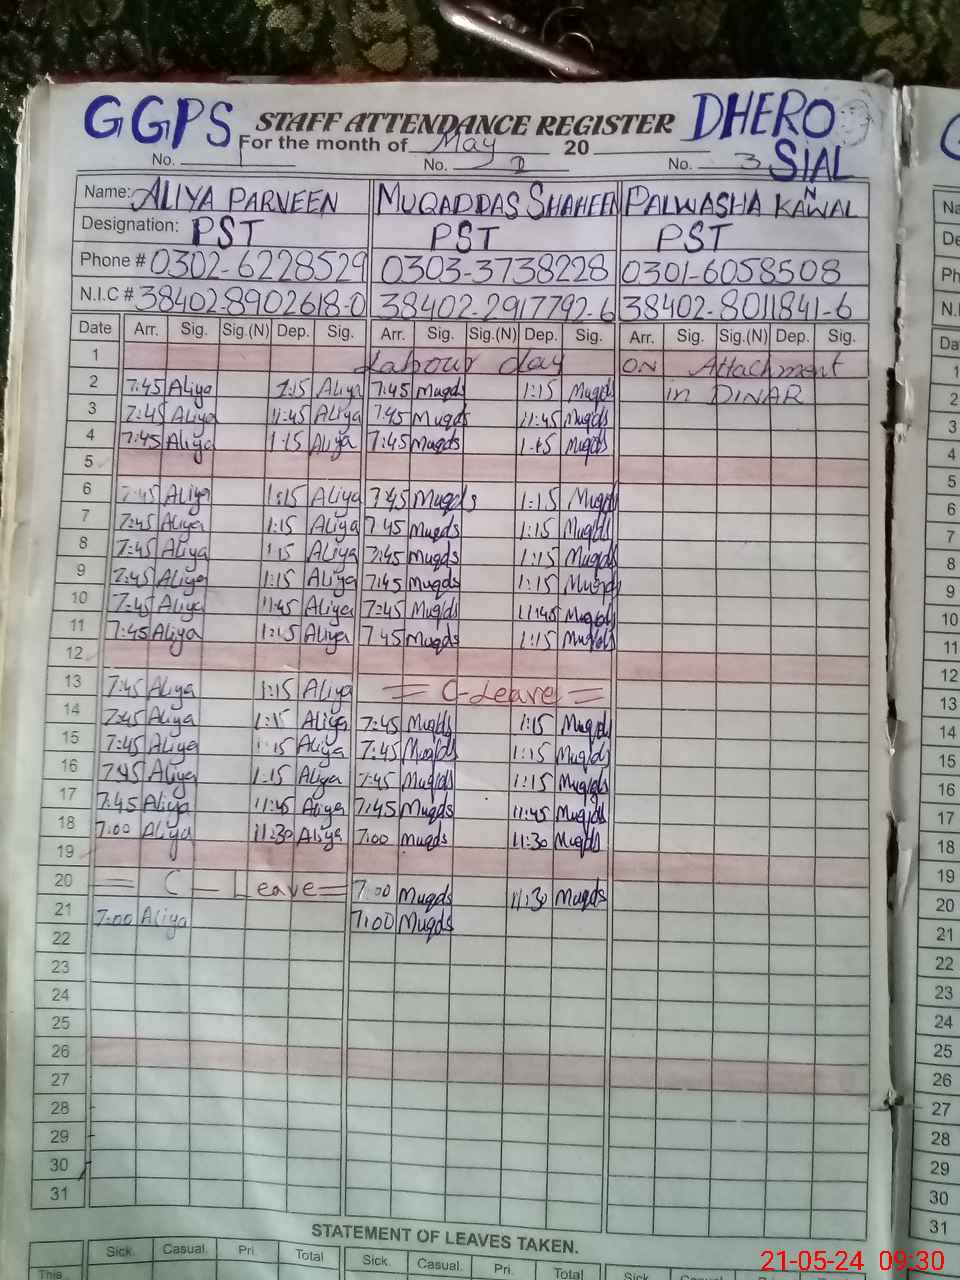 GGPS STAFF ATTENDANCE REGISTER DHERO SIAL
For the month of May 20
No. 1 No. 2 No. 3
Name: ALIYA PARVEEN MUQADDAS SHAHEEN PALWASHA KANWAL
Designation: PST PST PST
Phone # 0302-6228529 0303-3738228 0301-6058508
N.I.C # 38402-8902618-0 38402-2917792-6 38402-8011841-6
Date Arr. Sig. Sig.(N) Dep. Sig. Arr. Sig. Sig.(N) Dep. Sig. Arr. Sig. Sig.(N) Dep. Sig.
1 Labour day ON Attachment
2 7:45 Aliya 1:15 Aliya 7:45 Muqds 1:15 Muqds in DINAR
3 7:45 Aliya 11:45 Aliya 7:45 Muqds 11:45 Muqds
4 7:45 Aliya 1:15 Aliya 7:45 Muqds 1:15 Muqds
5
6 7:45 Aliya 1:15 Aliya 7:45 Muqds 1:15 Muqds
7 7:45 Aliya 1:15 Aliya 7:45 Muqds 1:15 Muqds
8 7:45 Aliya 1:15 Aliya 7:45 Muqds 1:15 Muqds
9 7:45 Aliya 1:15 Aliya 7:45 Muqds 1:15 Muqds
10 7:45 Aliya 11:45 Aliya 7:45 Muqds 11:45 Muqds
11 7:45 Aliya 1:15 Aliya 7:45 Muqds 1:15 Muqds
12
13 7:45 Aliya 1:15 Aliya = C-Leave =
14 7:45 Aliya 1:15 Aliya 7:45 Muqds 1:15 Muqds
15 7:45 Aliya 1:15 Aliya 7:45 Muqds 1:15 Muqds
16 7:45 Aliya 1:15 Aliya 7:45 Muqds 1:15 Muqds
17 7:45 Aliya 11:45 Aliya 7:45 Muqds 11:45 Muqds
18 7:00 Aliya 11:30 Aliya 7:00 Muqds 11:30 Muqds
19
20 = C - Leave = 7:00 Muqds 11:30 Muqds
21 7:00 Aliya 7:00 Muqds
22
23
24
25
26
27
28
29
30
31
STATEMENT OF LEAVES TAKEN.
Sick. Casual. Pri. Total Sick. Casual. Pri. Total Sick. Casual.
This
21-05-24 09:30